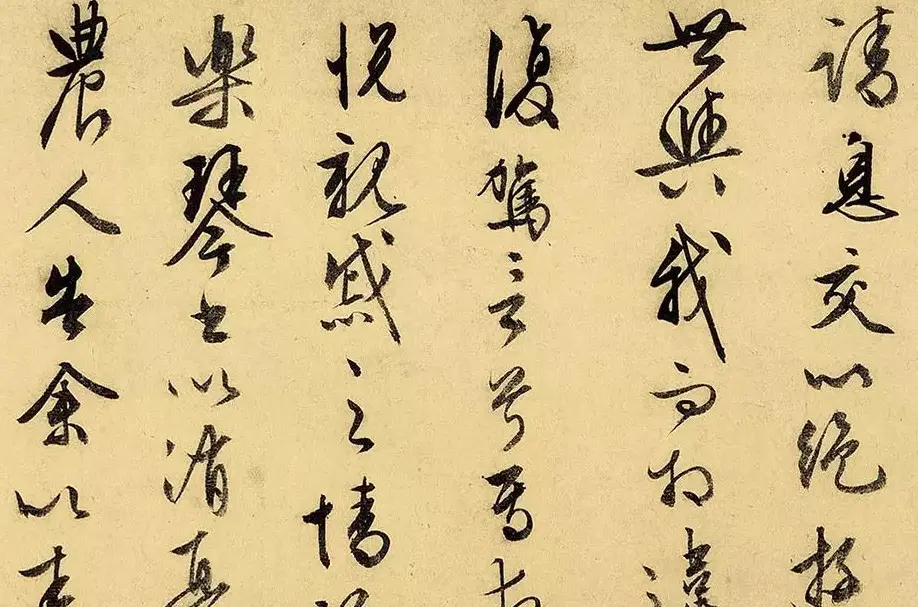 請息交以絕
世與我而相
復駕言兮焉
悅親戚之情
樂琴書以消
農人告余以